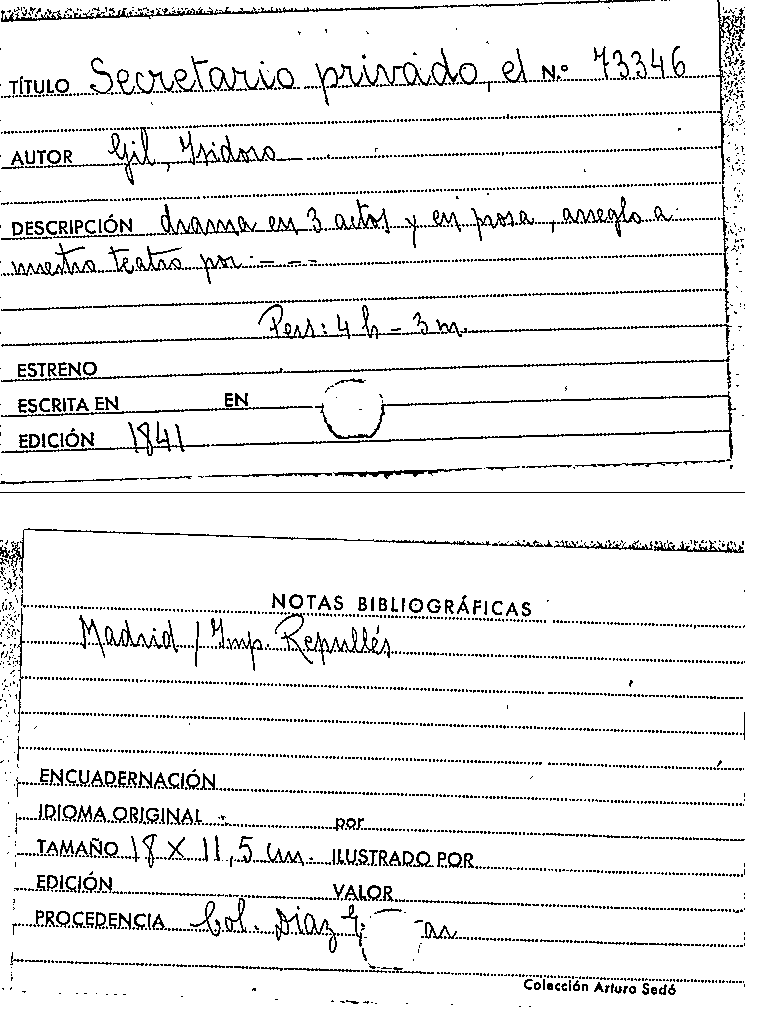 TÍTULO Secretario privado, el N.º 73346
AUTOR Gil, Isidoro
DESCRIPCIÓN drama en 3 actos y en prosa, arreglo a
nuestro teatro por: - - -
Pers: 4 h - 3 m.
ESTRENO
ESCRITA EN EN
EDICIÓN 1841
NOTAS BIBLIOGRÁFICAS
Madrid / Imp. Repullés
ENCUADERNACIÓN
IDIOMA ORIGINAL por
TAMAÑO 18 X 11,5 cm. ILUSTRADO POR
EDICIÓN VALOR
PROCEDENCIA Col. Diaz
Colección Arturo Sedó